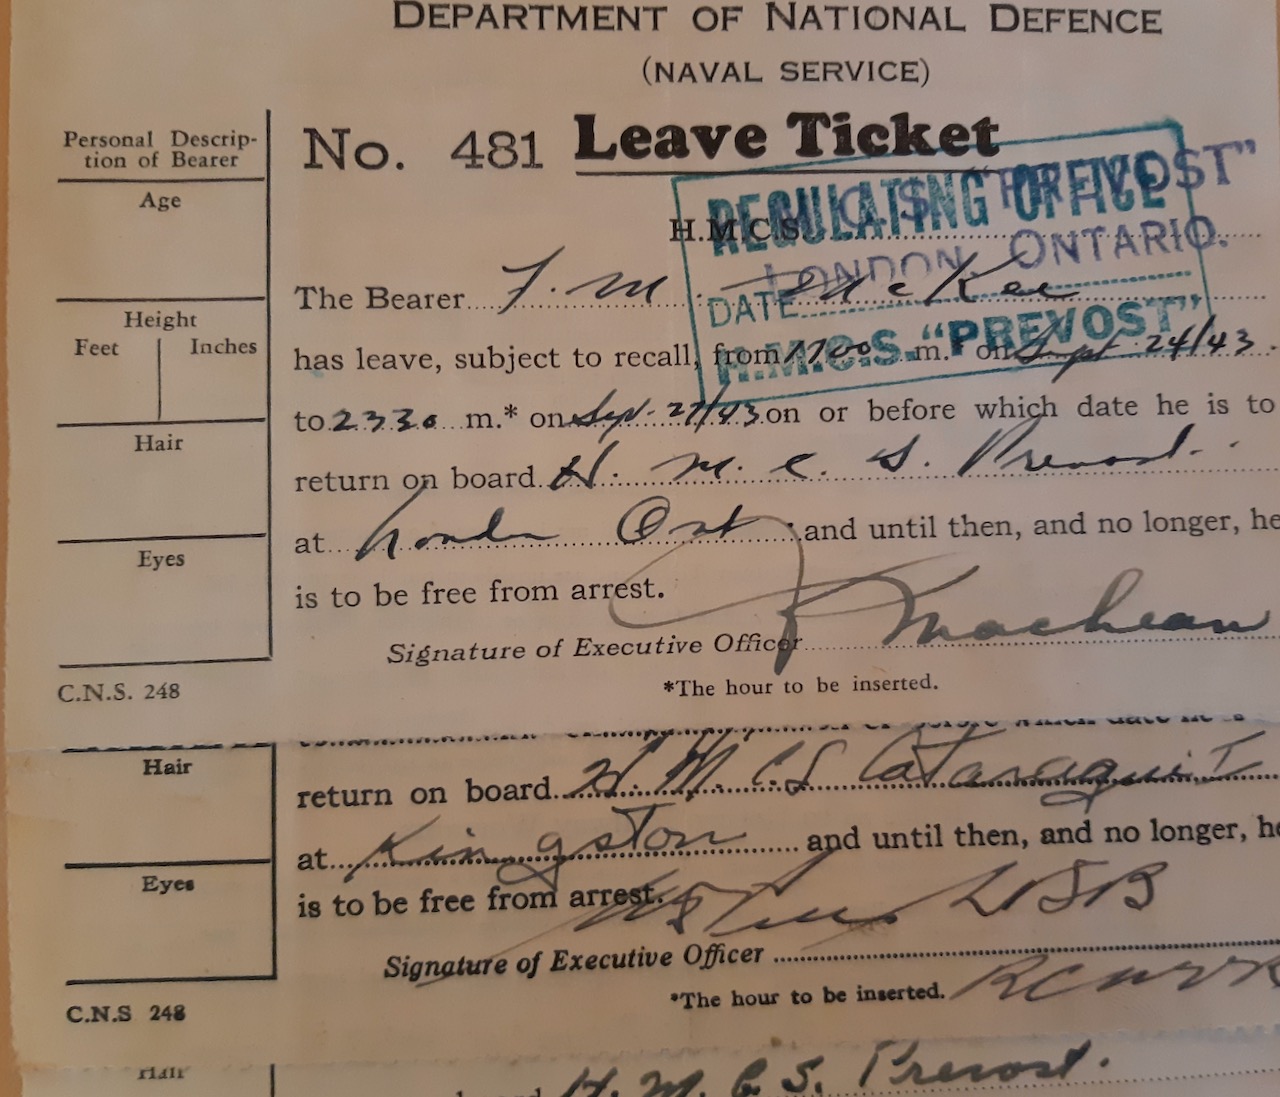 DEPARTMENT OF NATIONAL DEFENCE
(NAVAL SERVICE)
Personal Descrip-
tion of Bearer
Age
Height
Feet Inches
Hair
Eyes
C.N.S. 248
No. 481 Leave Ticket
REGULATING OFFICE
DATE
H.M.C.S. "PREVOST"
H.M.C.S. "PREVOST"
LONDON, ONTARIO.
H.M.C.S.
The Bearer F. M. McKee
has leave, subject to recall, from 1700 m.* on Sept 24/43
to 2330 m.* on Sept. 27/43 on or before which date he is to
return on board H. M. C. S. Prevost.
at London Ont and until then, and no longer, he
is to be free from arrest.
Signature of Executive Officer
*The hour to be inserted.
Hair
Eyes
C.N.S 248
return on board H.M.C.S Cataraqui
at Kingston and until then, and no longer, he
is to be free from arrest.
Signature of Executive Officer
*The hour to be inserted.
Hair
H. M. C. S. Prevost.